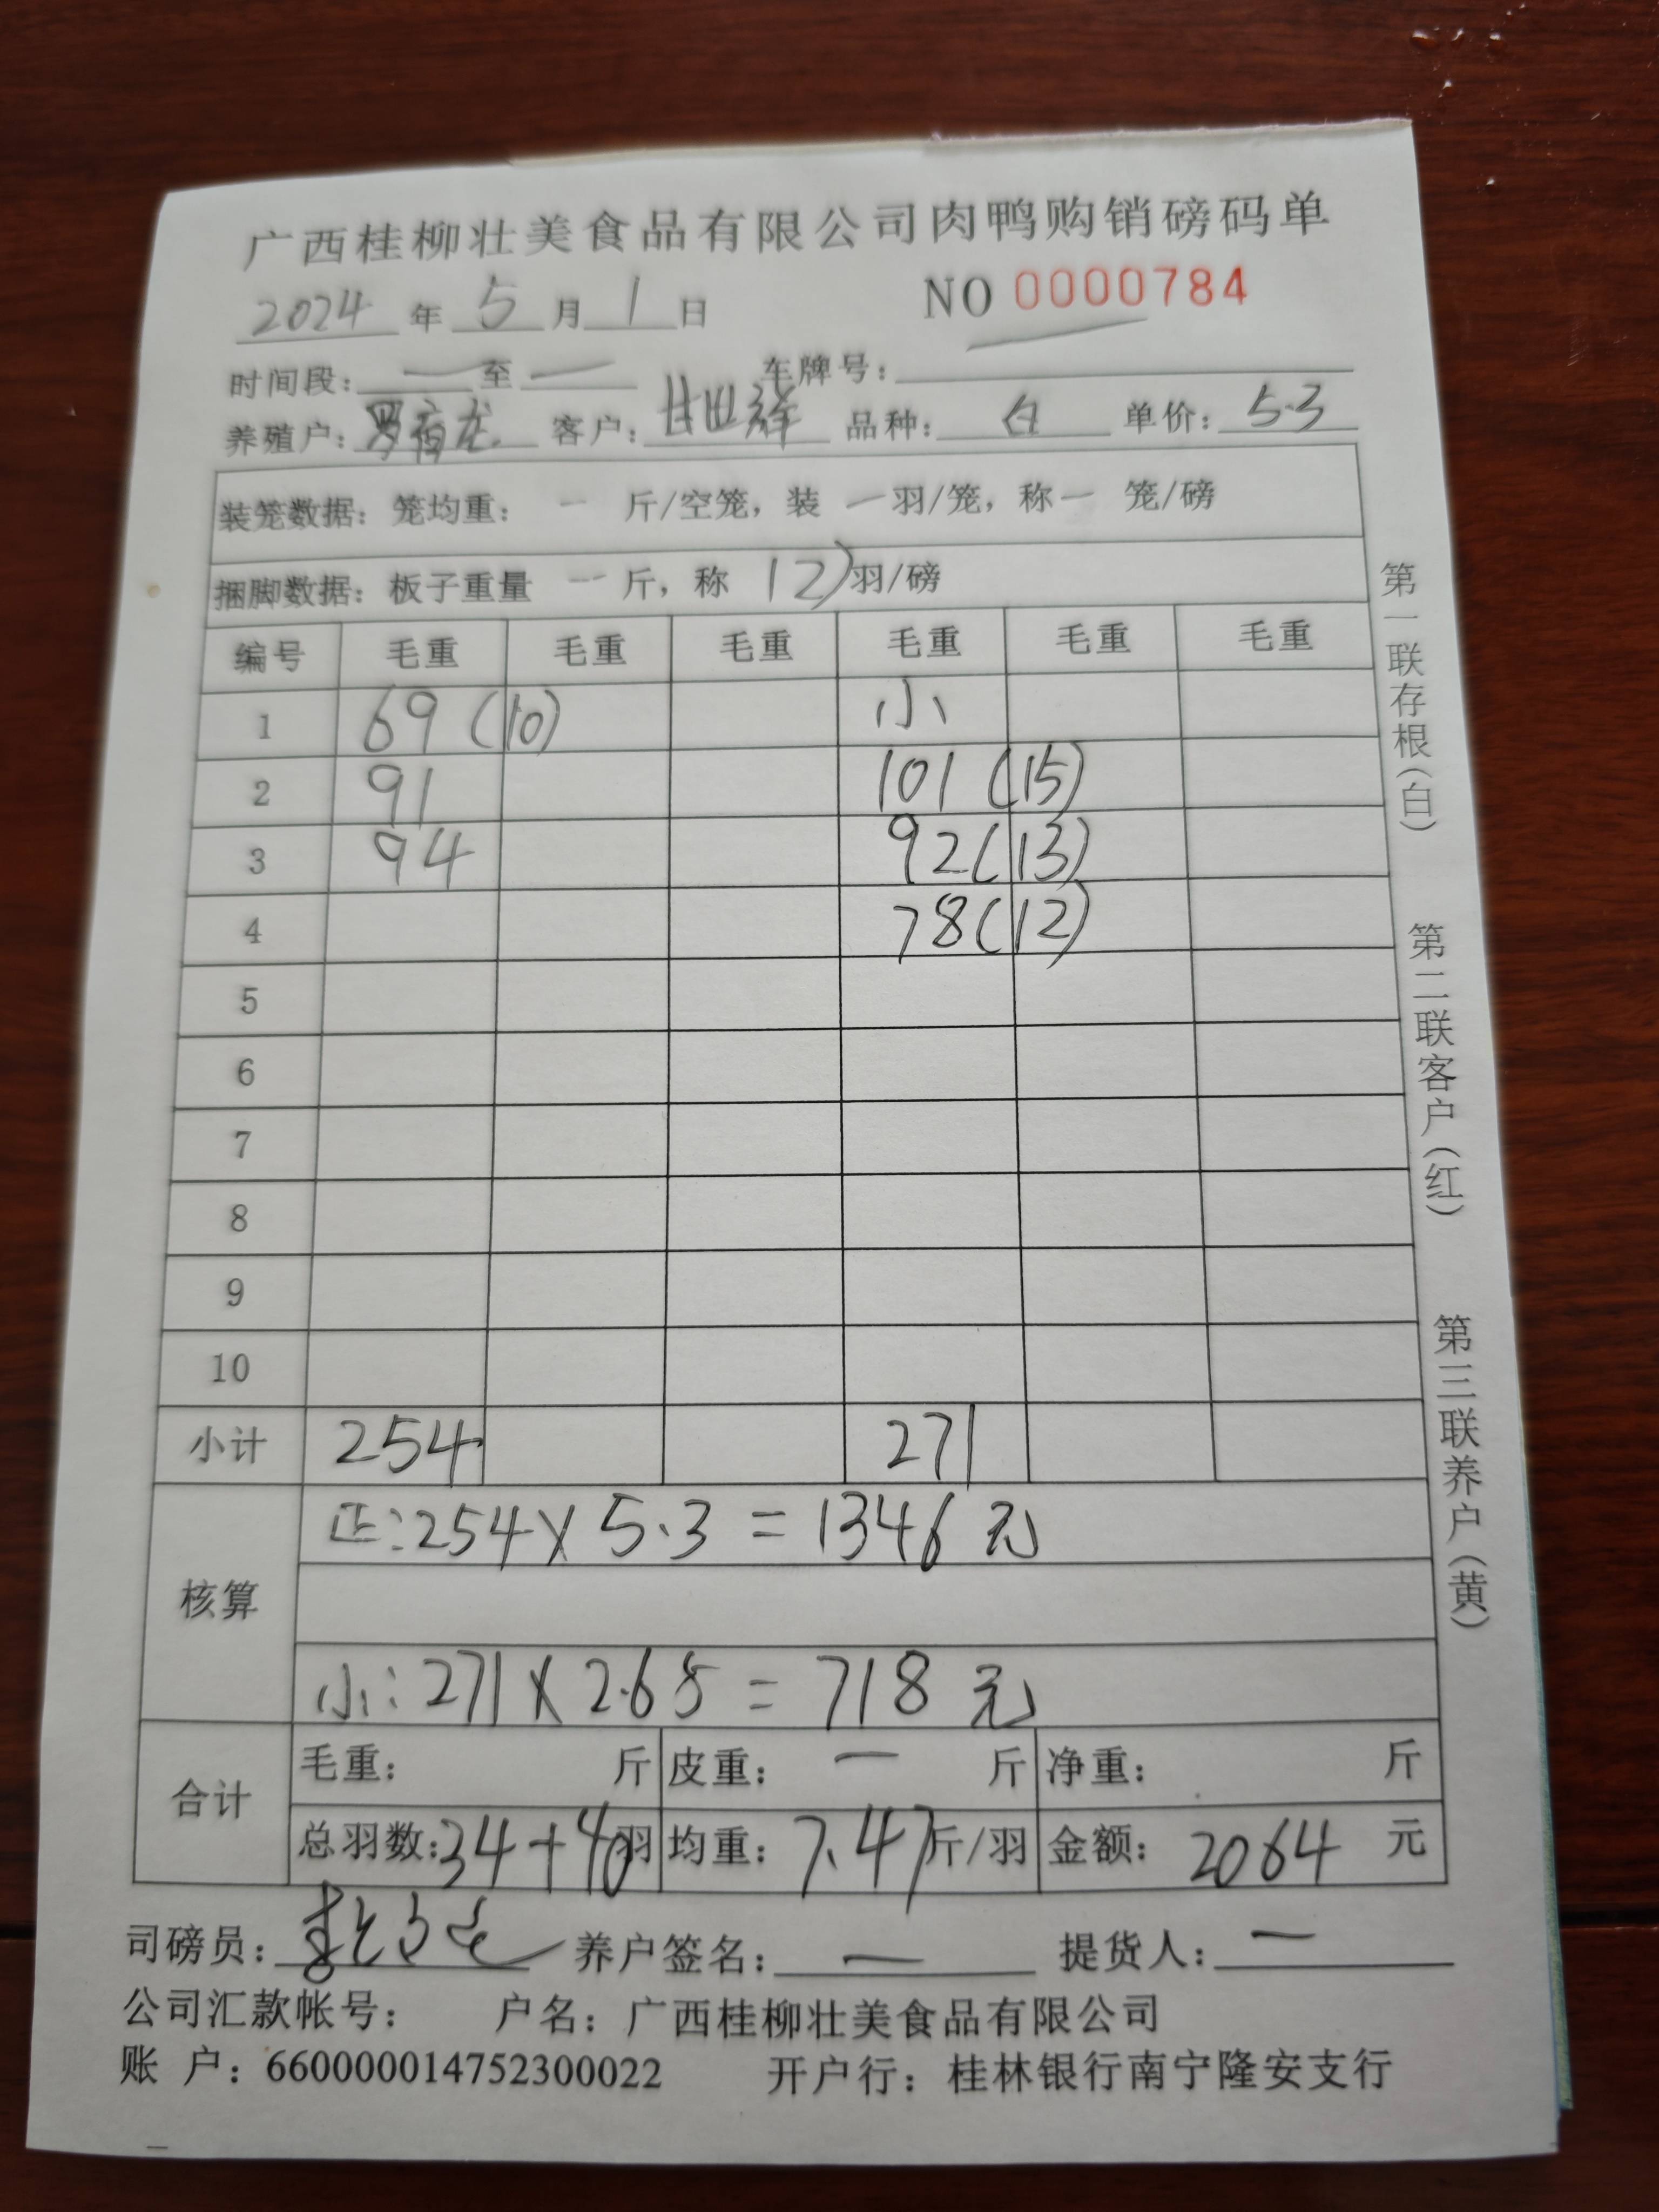 广西桂柳壮美食品有限公司肉鸭购销磅码单
2024 年 5 月 1 日 NO 0000784
时间段: 一 至 一 车牌号:
养殖户: 罗 龙 客户: 甘世祥 品种: 白 单价: 5.3
装笼数据: 笼均重: 一 斤/空笼, 装 一 羽/笼, 称 一 笼/磅
捆脚数据: 板子重量 一 斤, 称 12) 羽/磅
编号 毛重 毛重 毛重 毛重 毛重 毛重
1 69 (10) 小
2 91 101 (15)
3 94 92 (13)
4 78 (12)
5
6
7
8
9
10
小计 254 271
核算
正: 254 × 5.3 = 1346 元
小: 271 × 2.65 = 718 元
合计
毛重: 斤 皮重: 一 斤 净重: 斤
总羽数: 34+40 羽 均重: 7.47 斤/羽 金额: 2064 元
司磅员: 养户签名: 一 提货人: 一
公司汇款帐号: 户名: 广西桂柳壮美食品有限公司
账 户: 660000014752300022 开户行: 桂林银行南宁隆安支行
第一联存根(白)
第二联客户(红)
第三联养户(黄)